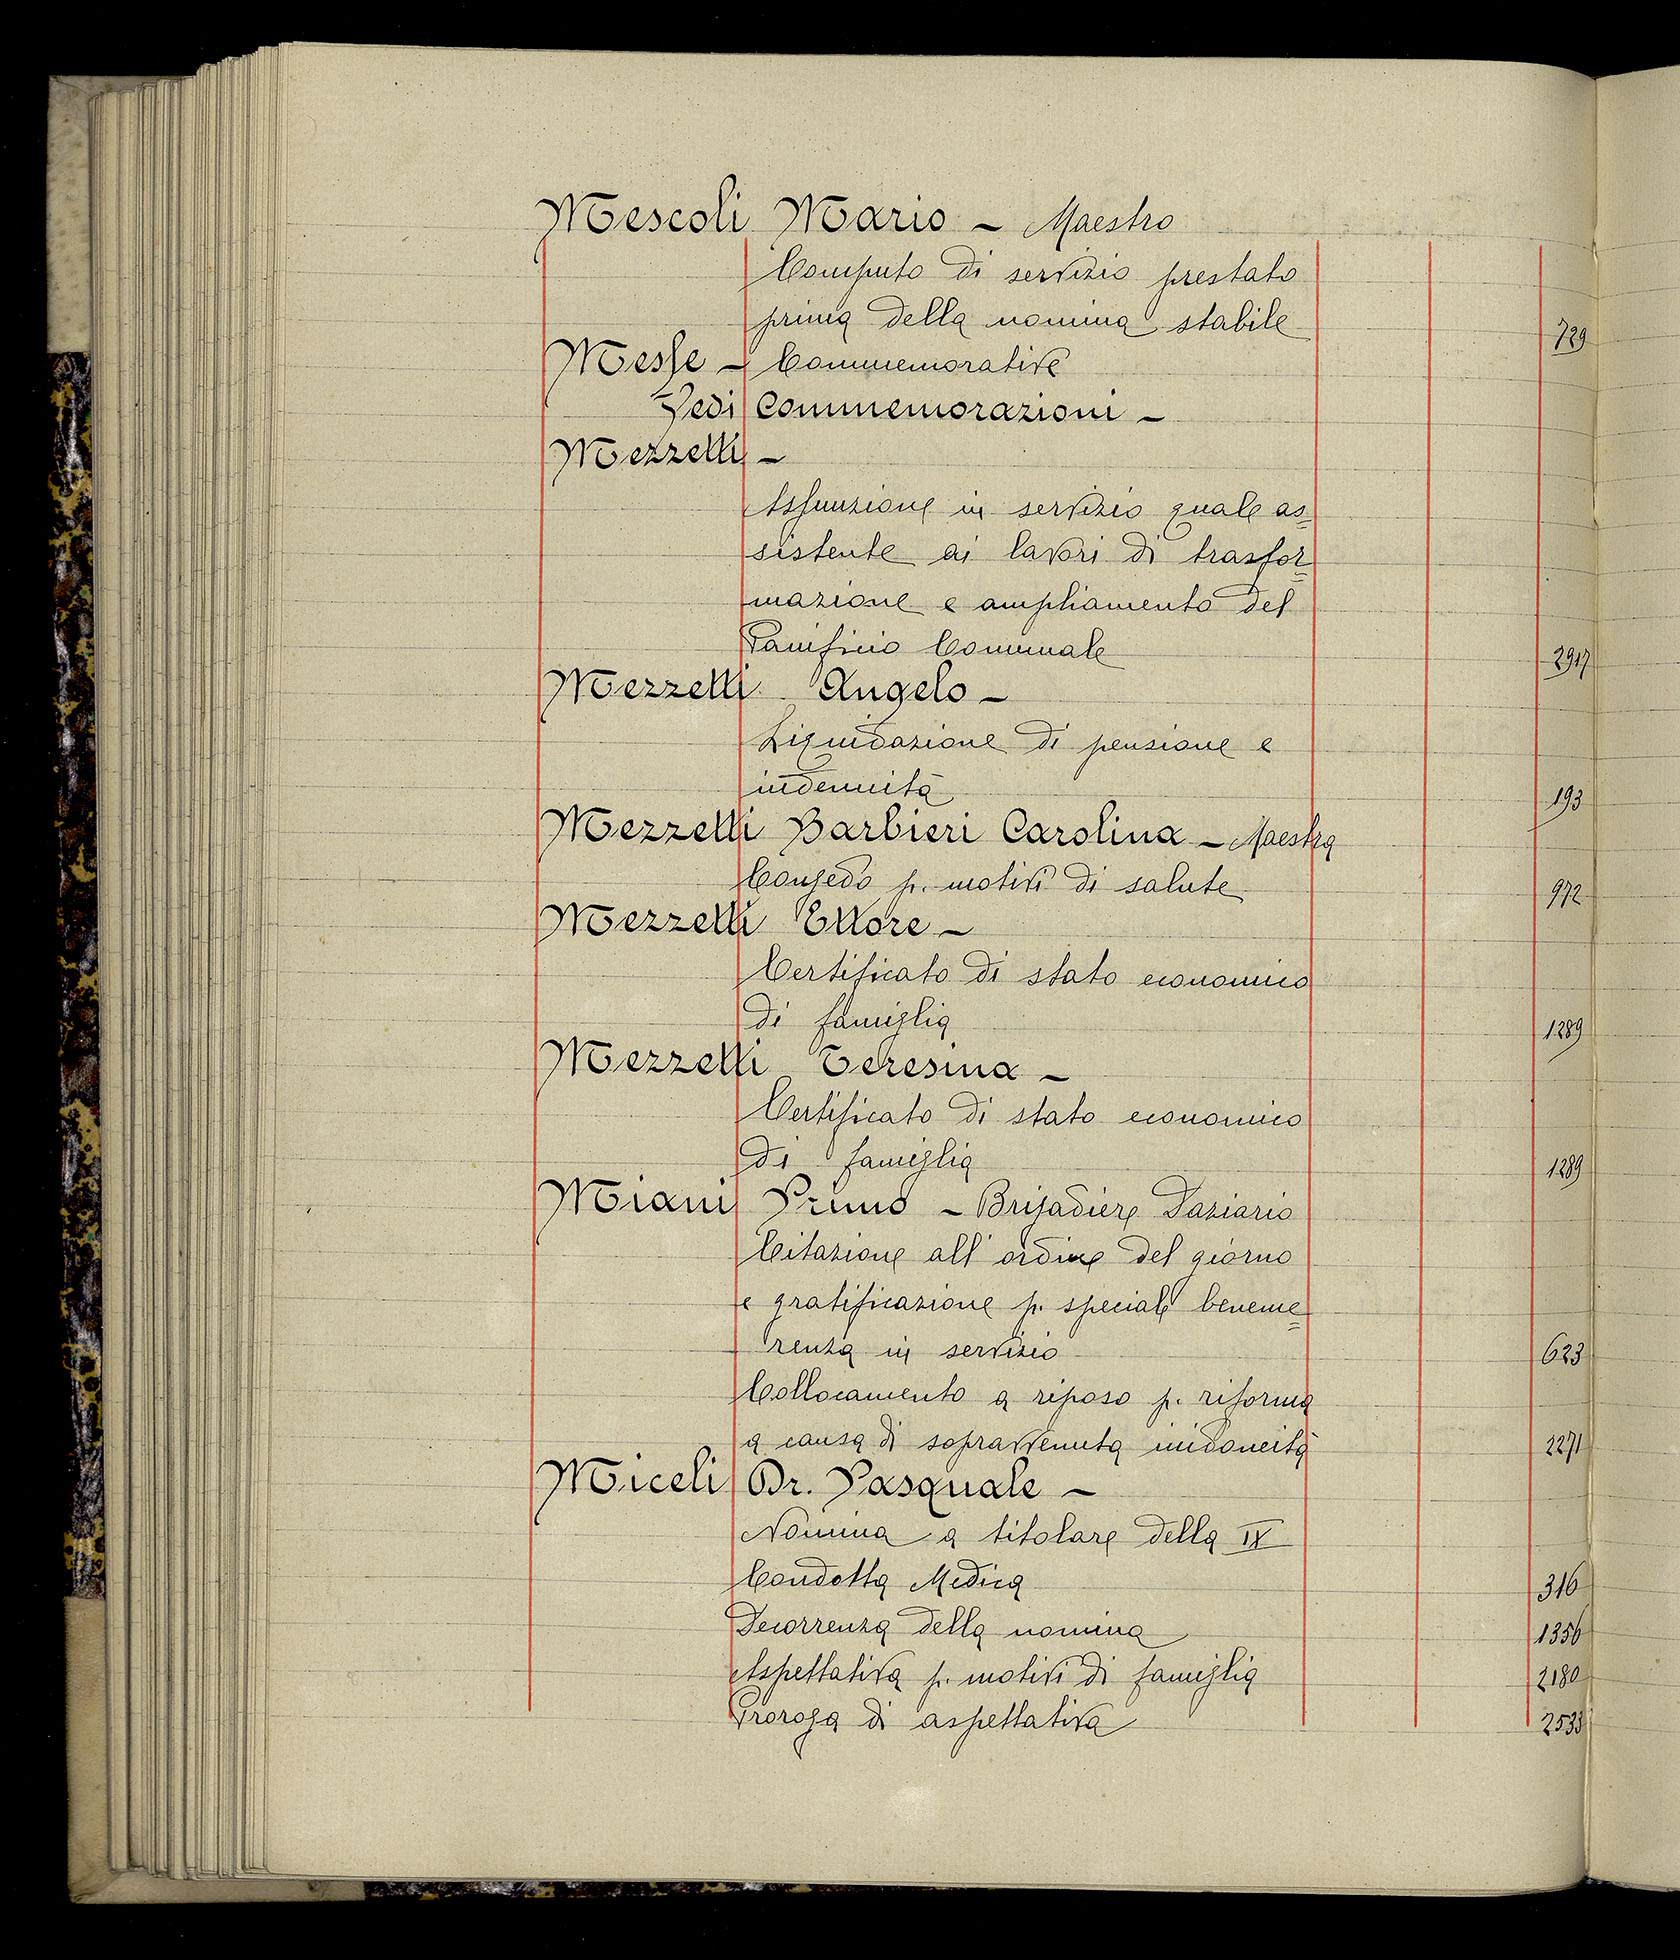 Mescoli Mario - Maestro
Computo di servizio prestato
prima della nomina stabile 729
Messe - Commemorative
Vedi Commemorazioni -
Mezzetti -
Assunzione in servizio quale as=
sistente ai lavori di trasfor=
mazione e ampliamento del
Panificio Comunale 2917
Mezzetti Angelo -
Liquidazione di pensione e
indennità 193
Mezzetti Barbieri Carolina - Maestra
Congedo p. motivi di salute 972
Mezzetti Ettore -
Certificato di stato economico
di famiglia 1289
Mezzetti Teresina -
Certificato di stato economico
di famiglia 1289
Miani Primo - Brigadiere Daziario
Citazione all'ordine del giorno
e gratificazione p. speciale beneme=
renza in servizio 623
Collocamento a riposo p. riforma
a causa di sopravvenuta inidoneità 2271
Miceli Dr. Pasquale -
Nomina a titolare della IX
Condotta Medica 316
Decorrenza della nomina 1356
Aspettativa p. motivi di famiglia 2180
Proroga di aspettativa 2533